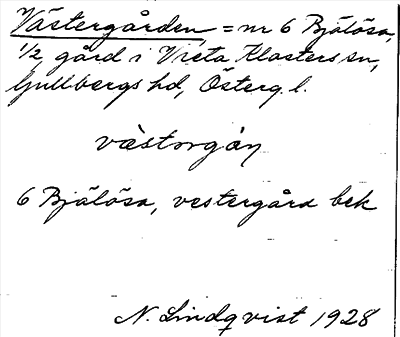 Västergården, = nr 6 Bjälösa,
1/2, gård i Vreta Klosters sn,
Gullbergs hd, Österg. l.
væ̀storgàṇ
6 Bjälösa, vestergård bek
N. Lindqvist 1928